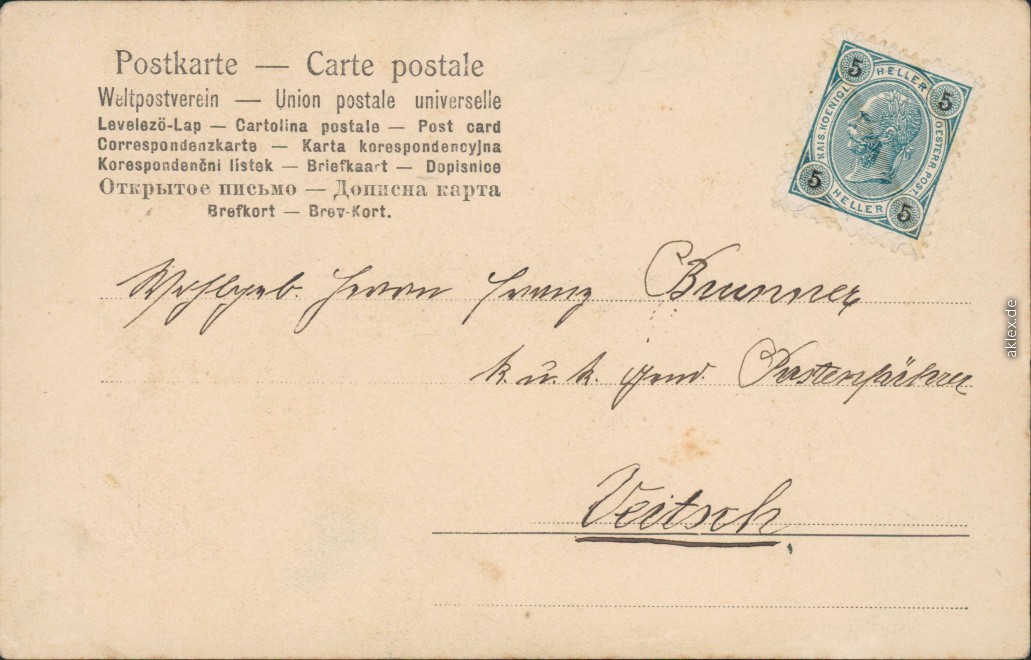 Postkarte — Carte postale
Weltpostverein — Union postale universelle
Levelező-Lap — Cartolina postale — Post card
Correspondenzkarte — Karta korespondencyjna
Korespondenčni listek — Briefkaart — Dopisnice
Открытое письмо — Дописна карта
Brefkort — Brev-Kort.
5 HELLER 5
KAIS. KOENIGL. OESTERR. POST.
5 HELLER 5
Wohlgeb. Herrn Franz Brunner
k. u. k. Postenführer
Veitsch
aklex.de